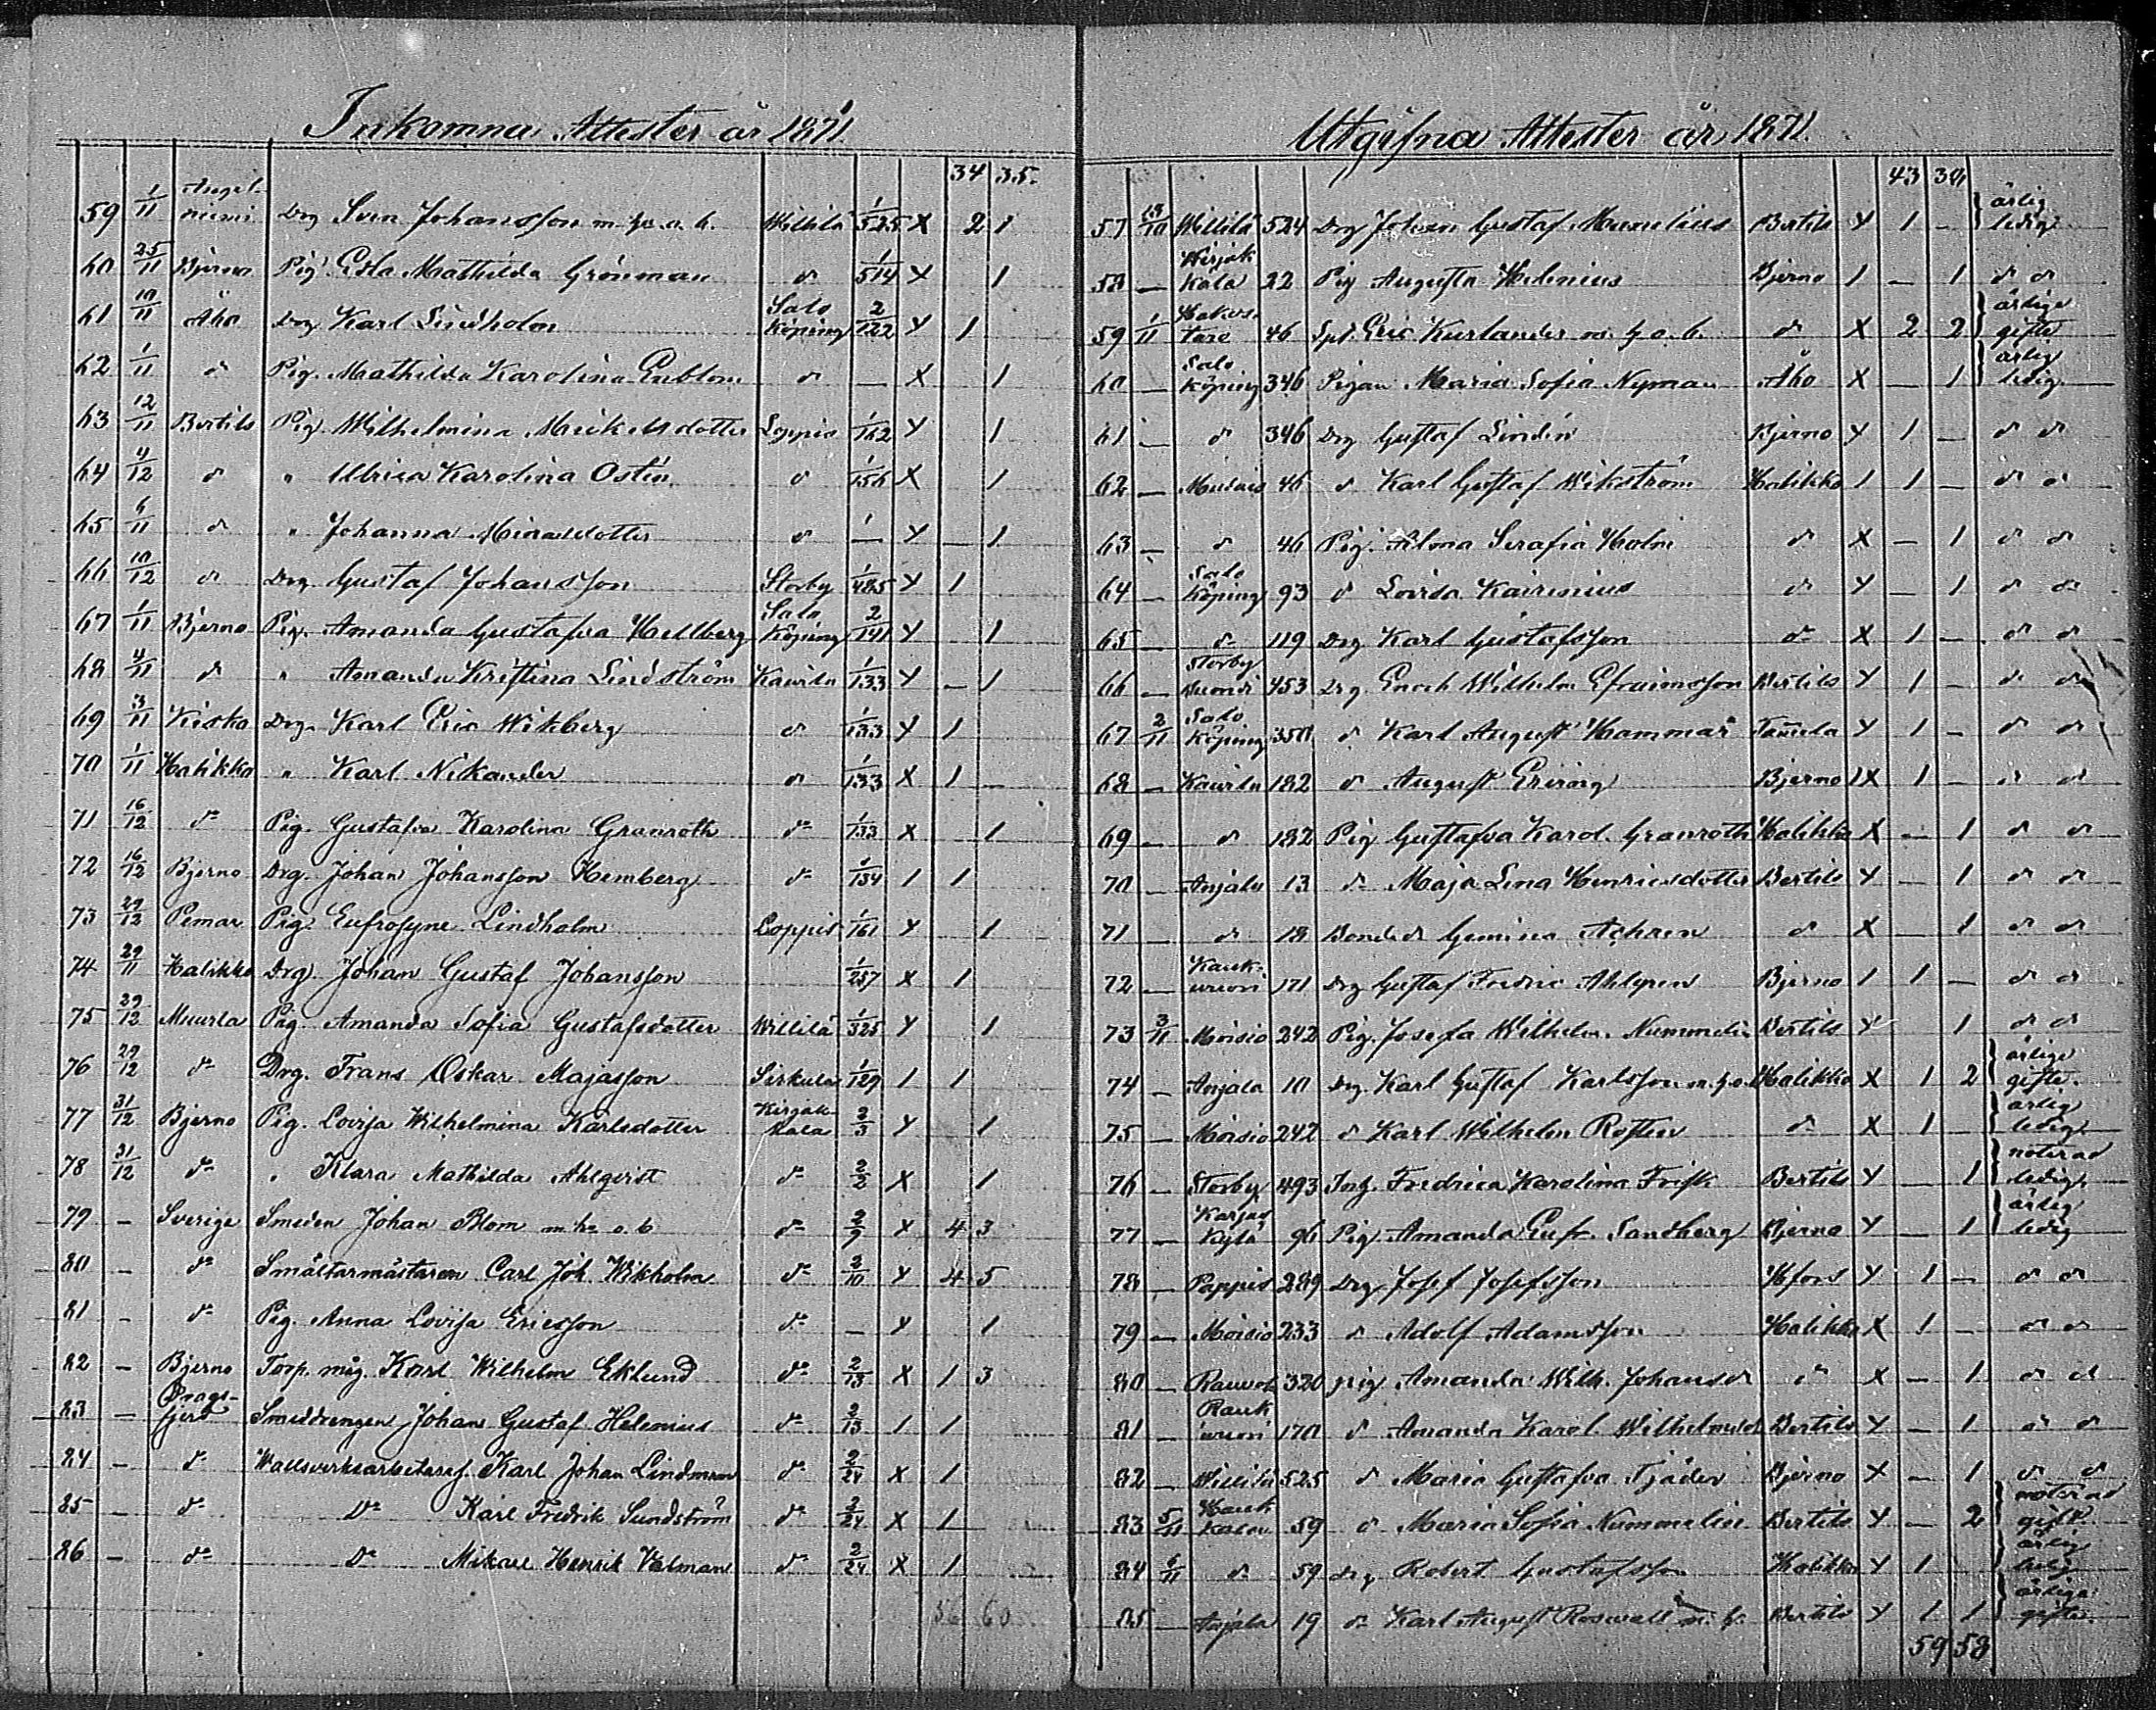 Inkomna Attester år 1871.
34 35.
59 1/11 Angelniemi Drg Sven Johansson m. h. o. b. Willilä 1/525 X 2 1
60 25/11 Bjerno Pig Mathilda Grönman d 1/514 Y 1
61 10/11 Åbo Drg Karl Lindholm Salo Köping 2/122 Y 1
62 1/11 d Pig. Mathilda Karolina d — X 1
63 12/11 Bertils Pig. Wilhelmina Mickelsdotter 1/162 Y 1
64 4/12 d " Ulrica Karolina Ostén d 1/156 X 1
65 6/11 d " Johanna d 1 — Y — 1
66 10/12 d Drg. Gustaf Johansson Storby 1/485 Y 1
67 1/11 Bjerno Pig. Amanda Gustafva Hellberg Salo Köping 2/141 Y 1
68 4/11 d " Amanda Kristina Lindström Kaurila 1/133 Y — 1
69 3/11 Kisko Drg. Karl Eric Wikberg d 1/133 Y 1
70 1/11 Halikko " Karl Nikander d 1/133 X 1 —
71 16/12 d:o Pig. Gustafva Karolina Granroth d:o 1/133 X 1
72 16/12 Bjerno Drg. Johan Johansson Hemberg d:o 1/134 1 1
73 29/12 Pemar Pig. Eufrosyne Lindholm Loppis 1/161 Y 1
74 29/11 Halikko Drg. Johan Gustaf Johansson 1/257 X 1
75 29/12 Muurla Pig. Amanda Sofia Gustafsdotter Willilä 1/325 Y 1
76 29/12 d:o Drg. Frans Oskar Majasson Sirkula 1/129 1 1
77 31/12 Bjerno Pig. Lovisa Wilhelmina Karlsdotter Kirjakkala 2/3 Y 1
78 31/12 d:o " Klara Mathilda Ahlqvist d:o 2/2 X 1
79 — Sverige Smeden Johan Blom m. h. o. b d:o 2/9 X 4 3
80 — d:o Smältarmästaren Carl Joh. Wikholm d:o 2/10 Y 4 5
81 — d:o Pig. Anna Lovisa Ericsson d:o — Y 1
82 — Bjerno Torp. måg. Karl Wilhelm Eklund d:o 2/13 X 1 3
83 — Dragsfjerd Smeddrengen Johan Gustaf Helenius d:o 2/13 1 1
84 — d:o Wallsverksarbetaren Karl Johan Lindman d:o 2/24 X 1
85 — d:o D:o Karl Fredrik Sundström d:o 2/24 X 1
86 — d:o D:o Mikael Henrik Valman d:o 2/24 X 1
56 60
Utgifna Attester år 1871.
43 34
57 13/10 Willilä 524 Drg Johan Gustaf Bertils Y 1 — ärlig ledig
58 — Kirjakkala 22 Pig Augusta Helenius Bjerno 1 — 1 d d
59 1/11 46 Eric Kurlander m. h. o. b. d X 2 2 ärlige gifte
60 — Salo Köping 346 Pigan Maria Sofia Nyman Åbo X — 1 ärlig ledig
61 — d 346 Drg Gustaf Lindén Bjerno Y 1 — d d
62 — 46 d Karl Gustaf Wikström Halikko 1 1 — d d
63 — d 46 Pig. Serafia Holm d X — 1 d d
64 — Salo Köping 93 d Lovisa d Y — 1 d d
65 — d 119 Drg Karl Gustafsson d X 1 — d d
66 — Storby 453 Drg. Enoch Wilhelm Efraimsson Bertils Y 1 — d d
67 2/11 Salo Köping 350 d Karl August Hammar Y 1 — d d
68 — Kaurila 182 d August Bjerno 1X 1 — d d
69 — d 182 Pig Gustafva Karol. Granroth Halikko X — 1 d d
70 — Anjala 13 d Maja Lena Henricsdotter Bertils Y — 1 d d
71 — d 18 Bonded. Gemina d X — 1 d d
72 — 171 Drg Gustaf Fredric Ahlgren Bjerno 1 1 — d d
73 3/11 Moisio 242 Pig. Josefa Wilhelm. Nummelin Bertils Y 1 d d
74 — Anjala 10 Drg. Karl Gustaf Karlsson m. h. o. Halikko X 1 2 ärlige gifte.
75 — Moisio 242 d Karl Wilhelm d X 1 — ärlig ledig
76 — Storby 493 Inh. Fredrica Karolina Frisk Bertils Y — 1 noterad ledig
77 — Karjaskylä 96 Pig Amanda Eufr. Sandberg Bjerno Y — 1 ärlig ledig
78 — Pappis 289 Drg Josef Josefsson Hfors Y 1 — d d
79 — Moisio 233 d Adolf Adamsson Halikko X 1 — d d
80 — 320 pig Amanda Wilh. Johansd d X — 1 d d
81 — 170 d Amanda Karol. Wilhelmsd Bertils Y — 1 d d
82 — Willilä 525 d Maria Gustafva Tjäder Bjerno X — 1 d d
83 5/11 59 d Maria Sofia Nummelin Bertils Y — 2 noterad gift
84 6/11 d 59 drg Robert Gustafsson Halikko Y 1 ärlig ledig
85 — Anjala 19 d Karl August Roswall m. h. Bertils Y 1 1 ärlige gifte.
59 58